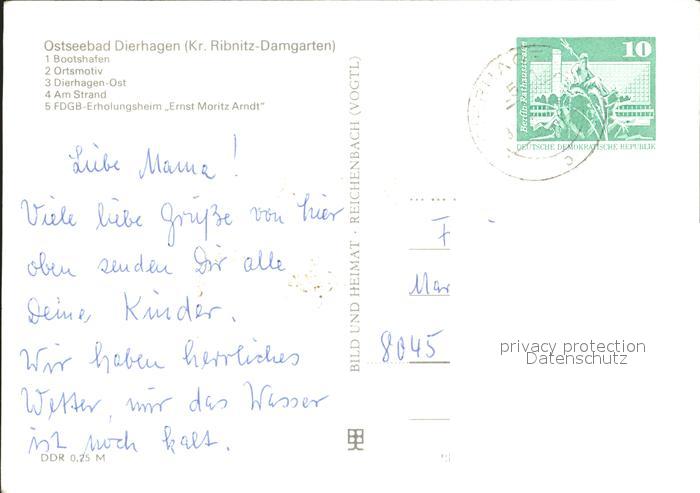 Ostseebad Dierhagen (Kr. Ribnitz-Damgarten)
1 Bootshafen
2 Ortsmotiv
3 Dierhagen-Ost
4 Am Strand
5 FDGB-Erholungsheim „Ernst Moritz Arndt“
Liebe Mama!
Viele liebe Grüße von hier
oben senden Dir alle
Deine Kinder.
Wir haben herrliches
Wetter, nur das Wasser
ist noch kalt.
DDR 0,25 M
BILD UND HEIMAT · REICHENBACH (VOGTL)
10
Berlin-Rathausstraße
DEUTSCHE DEMOKRATISCHE REPUBLIK
F
Mar
8045
privacy protection
Datenschutz